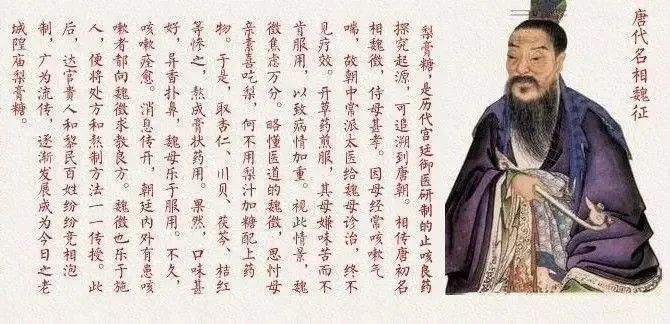 唐代名相魏征
梨膏糖，是历代宫廷御医研制的止咳良药
探究起源，可追溯到唐朝。相传唐初名
相魏徵，侍母甚孝。因母经常咳嗽气
喘，故朝中常派太医给魏母诊治，终不
见疗效。开草药煎服，其母嫌味苦而不
肯服用，以致病情加重。视此情景，魏
徵焦虑万分。略懂医道的魏徵，思忖母
亲素喜吃梨，何不用梨汁加糖配上药
物。于是，取杏仁、川贝、茯苓、桔红
等惨之，熬成膏状药用。果然，口味甚
好，异香扑鼻，魏母乐于服用。不久，
咳嗽痊愈。消息传开，朝廷内外有患咳
嗽者都向魏徵求教良方。魏徵也乐于施
人，便将处方和熬制方法一一传授。此
后，达官贵人和黎民百姓纷纷竞相泡
制，广为流传，逐渐发展成为今日之老
城隍庙梨膏糖。